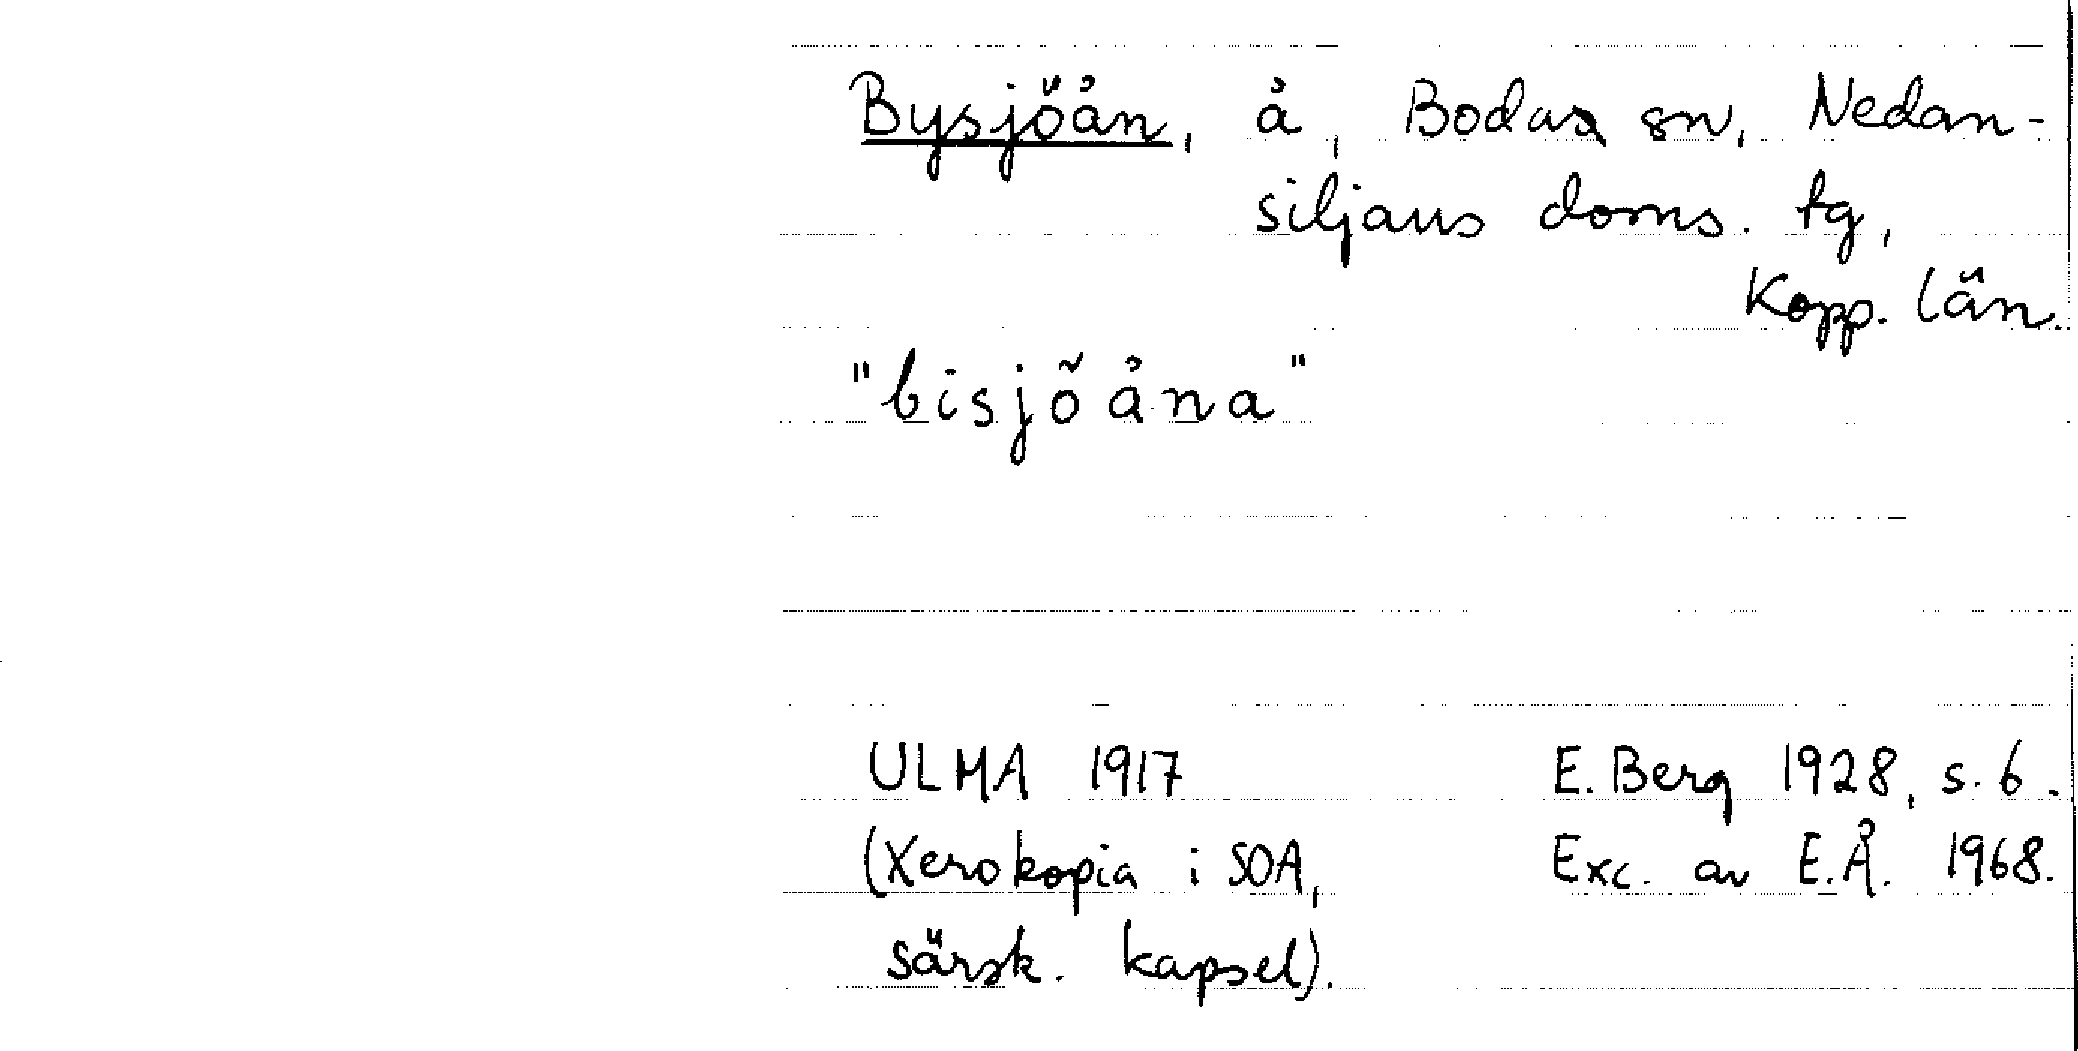 Bysjöån, å, Bodas sn, Nedan-
siljans doms. tg,
Kopp. län.
"bisjõåna"
ULMA 1917 E. Berg 1928, s. 6.
(Xerokopia i SOA, Exc. av E.Å. 1968.
särsk. kapsel).